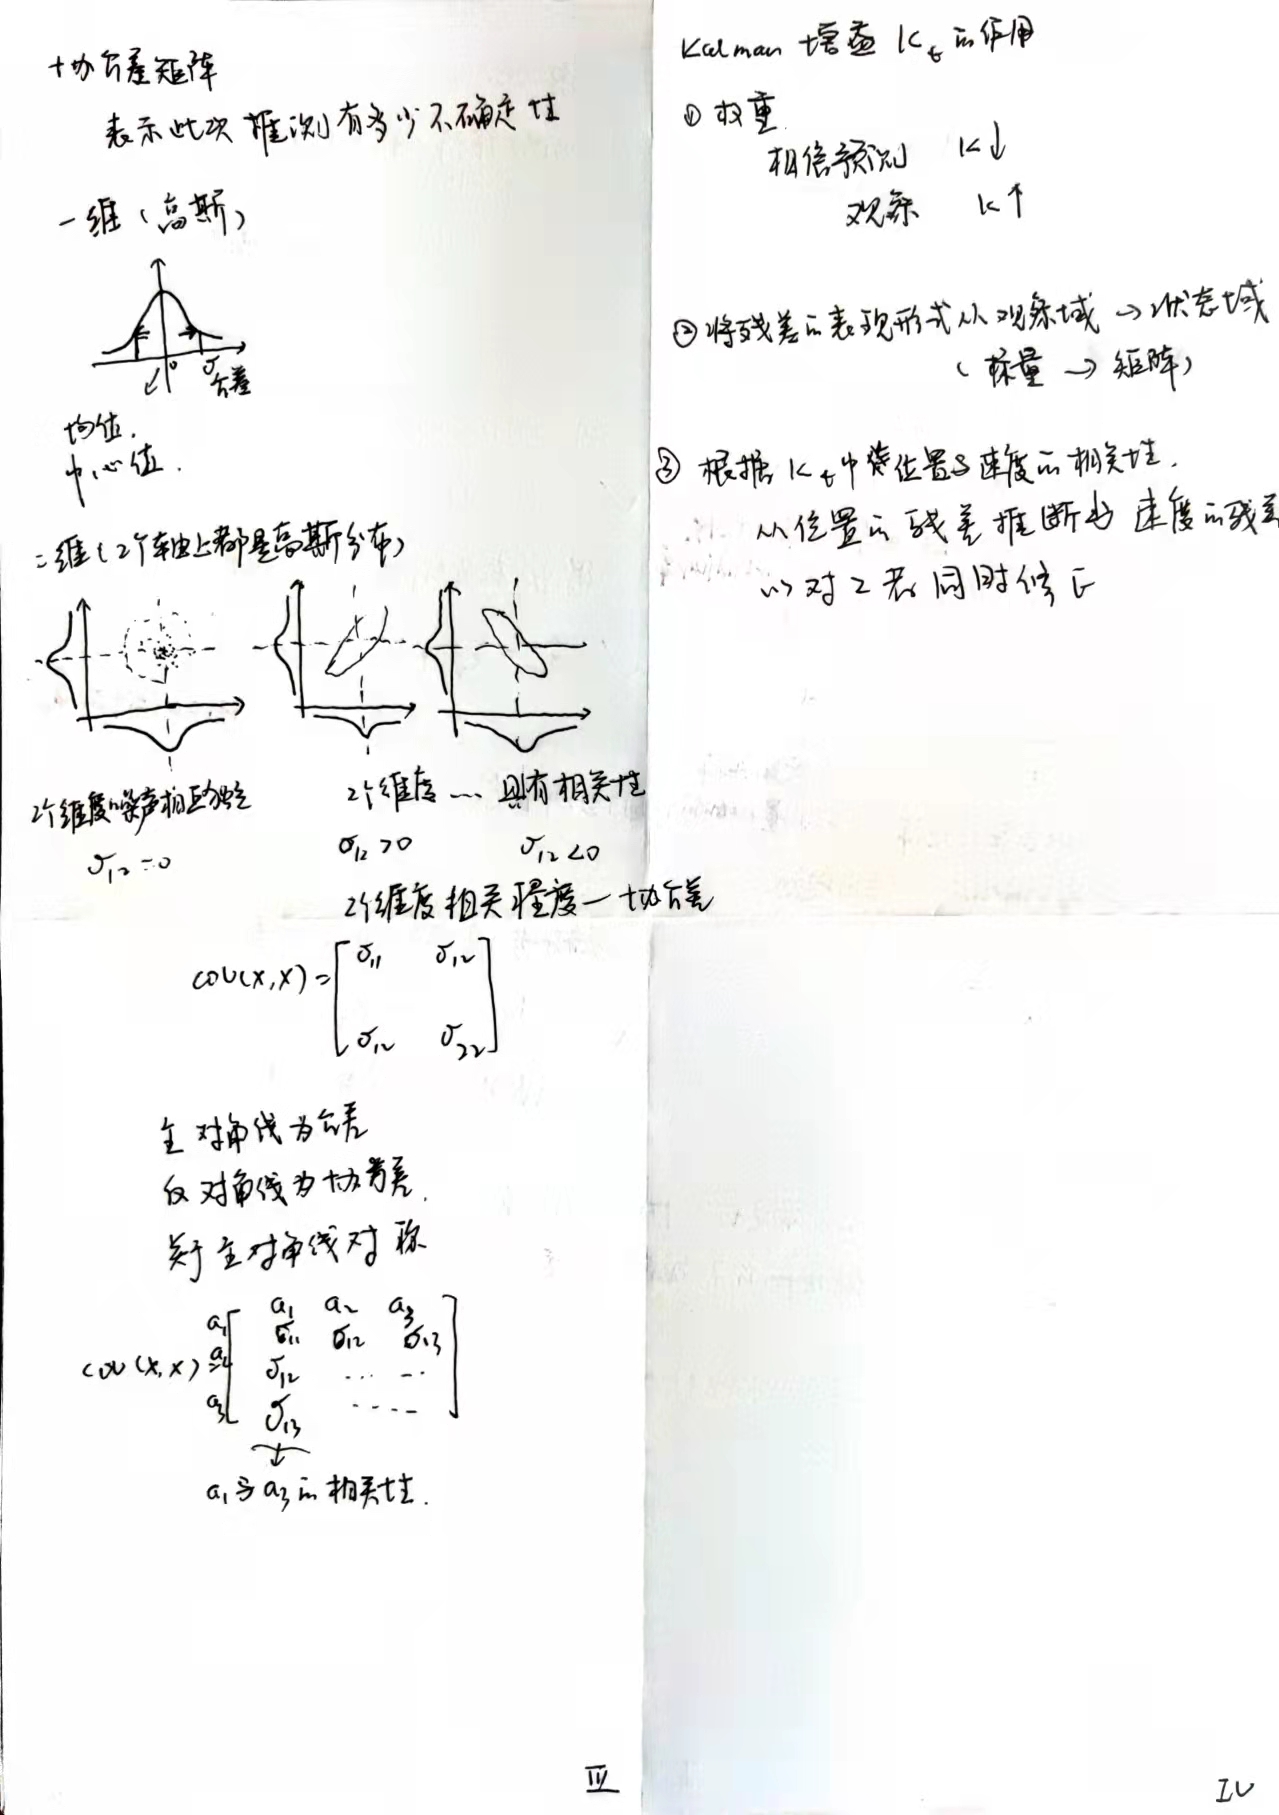 协方差矩阵
表示此次推测有多少不确定性
一维(高斯)
0 σ
方差
均值.
中心值.
二维(2个轴上都是高斯分布)
2个维度噪声相互独立
σ12=0
2个维度 ... 具有相关性
σ12>0 σ12<0
2个维度相关程度—协方差
cov(x,x)=[σ11 σ12
σ12 σ22]
主对角线为方差
反对角线为协方差.
关于主对角线对称
a1 a2 a3
a1 σ11 σ12 σ13
cov(x,x)= a2 σ12 ... ...
a3 σ13 ....
a1与a3的相关性.
III
Kalman 增益 Kt的作用
① 权重.
相信预测 K↓
观察 K↑
②将残差的表现形式从观察域→状态域
(标量→矩阵)
③ 根据Kt中位置与速度的相关性.
从位置的残差推断出速度的残差
以对2者同时修正
IV